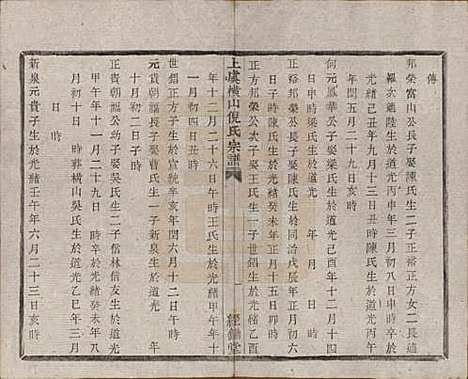 傳
邦榮富山公長子娶陳氏生二子正裕正方女二長適
羅次適陸生於道光丙申年三月初八日申時卒於
光緒己丑年九月十三日丑時陳氏生於道光
年閏五月二十九日亥時
何元鳳華公子娶梁氏生於道光己酉年十二月十四
日戌時梁氏生於道光 年 月 日 時
正裕邦榮公長子娶陳氏生於同治戊辰年正月初六
日 時陳氏生於光緒癸未年正月十五日卯時
正方邦榮公次子娶王氏生一子世錩生於光緒乙酉
上虞橫山倪氏宗譜
經鋤堂
年十二月二十六日午時王氏生於光緒甲午年十
一月初四日丑時
世錩正方子生於宣統辛亥年閏六月十二日午時
元貢朝賑公長子娶曹氏生一子新泉生於道光 年
十月初二日子時
正貴朝謳公幼子娶吳氏生二子信林信友生於道光
甲午年十一月二十九日 時卒於光緒癸未年八
月 日 時葬橫山吳氏生於道光乙巳年三月
日 時
新泉元貴子生於光緒壬午年六月二十三日亥時